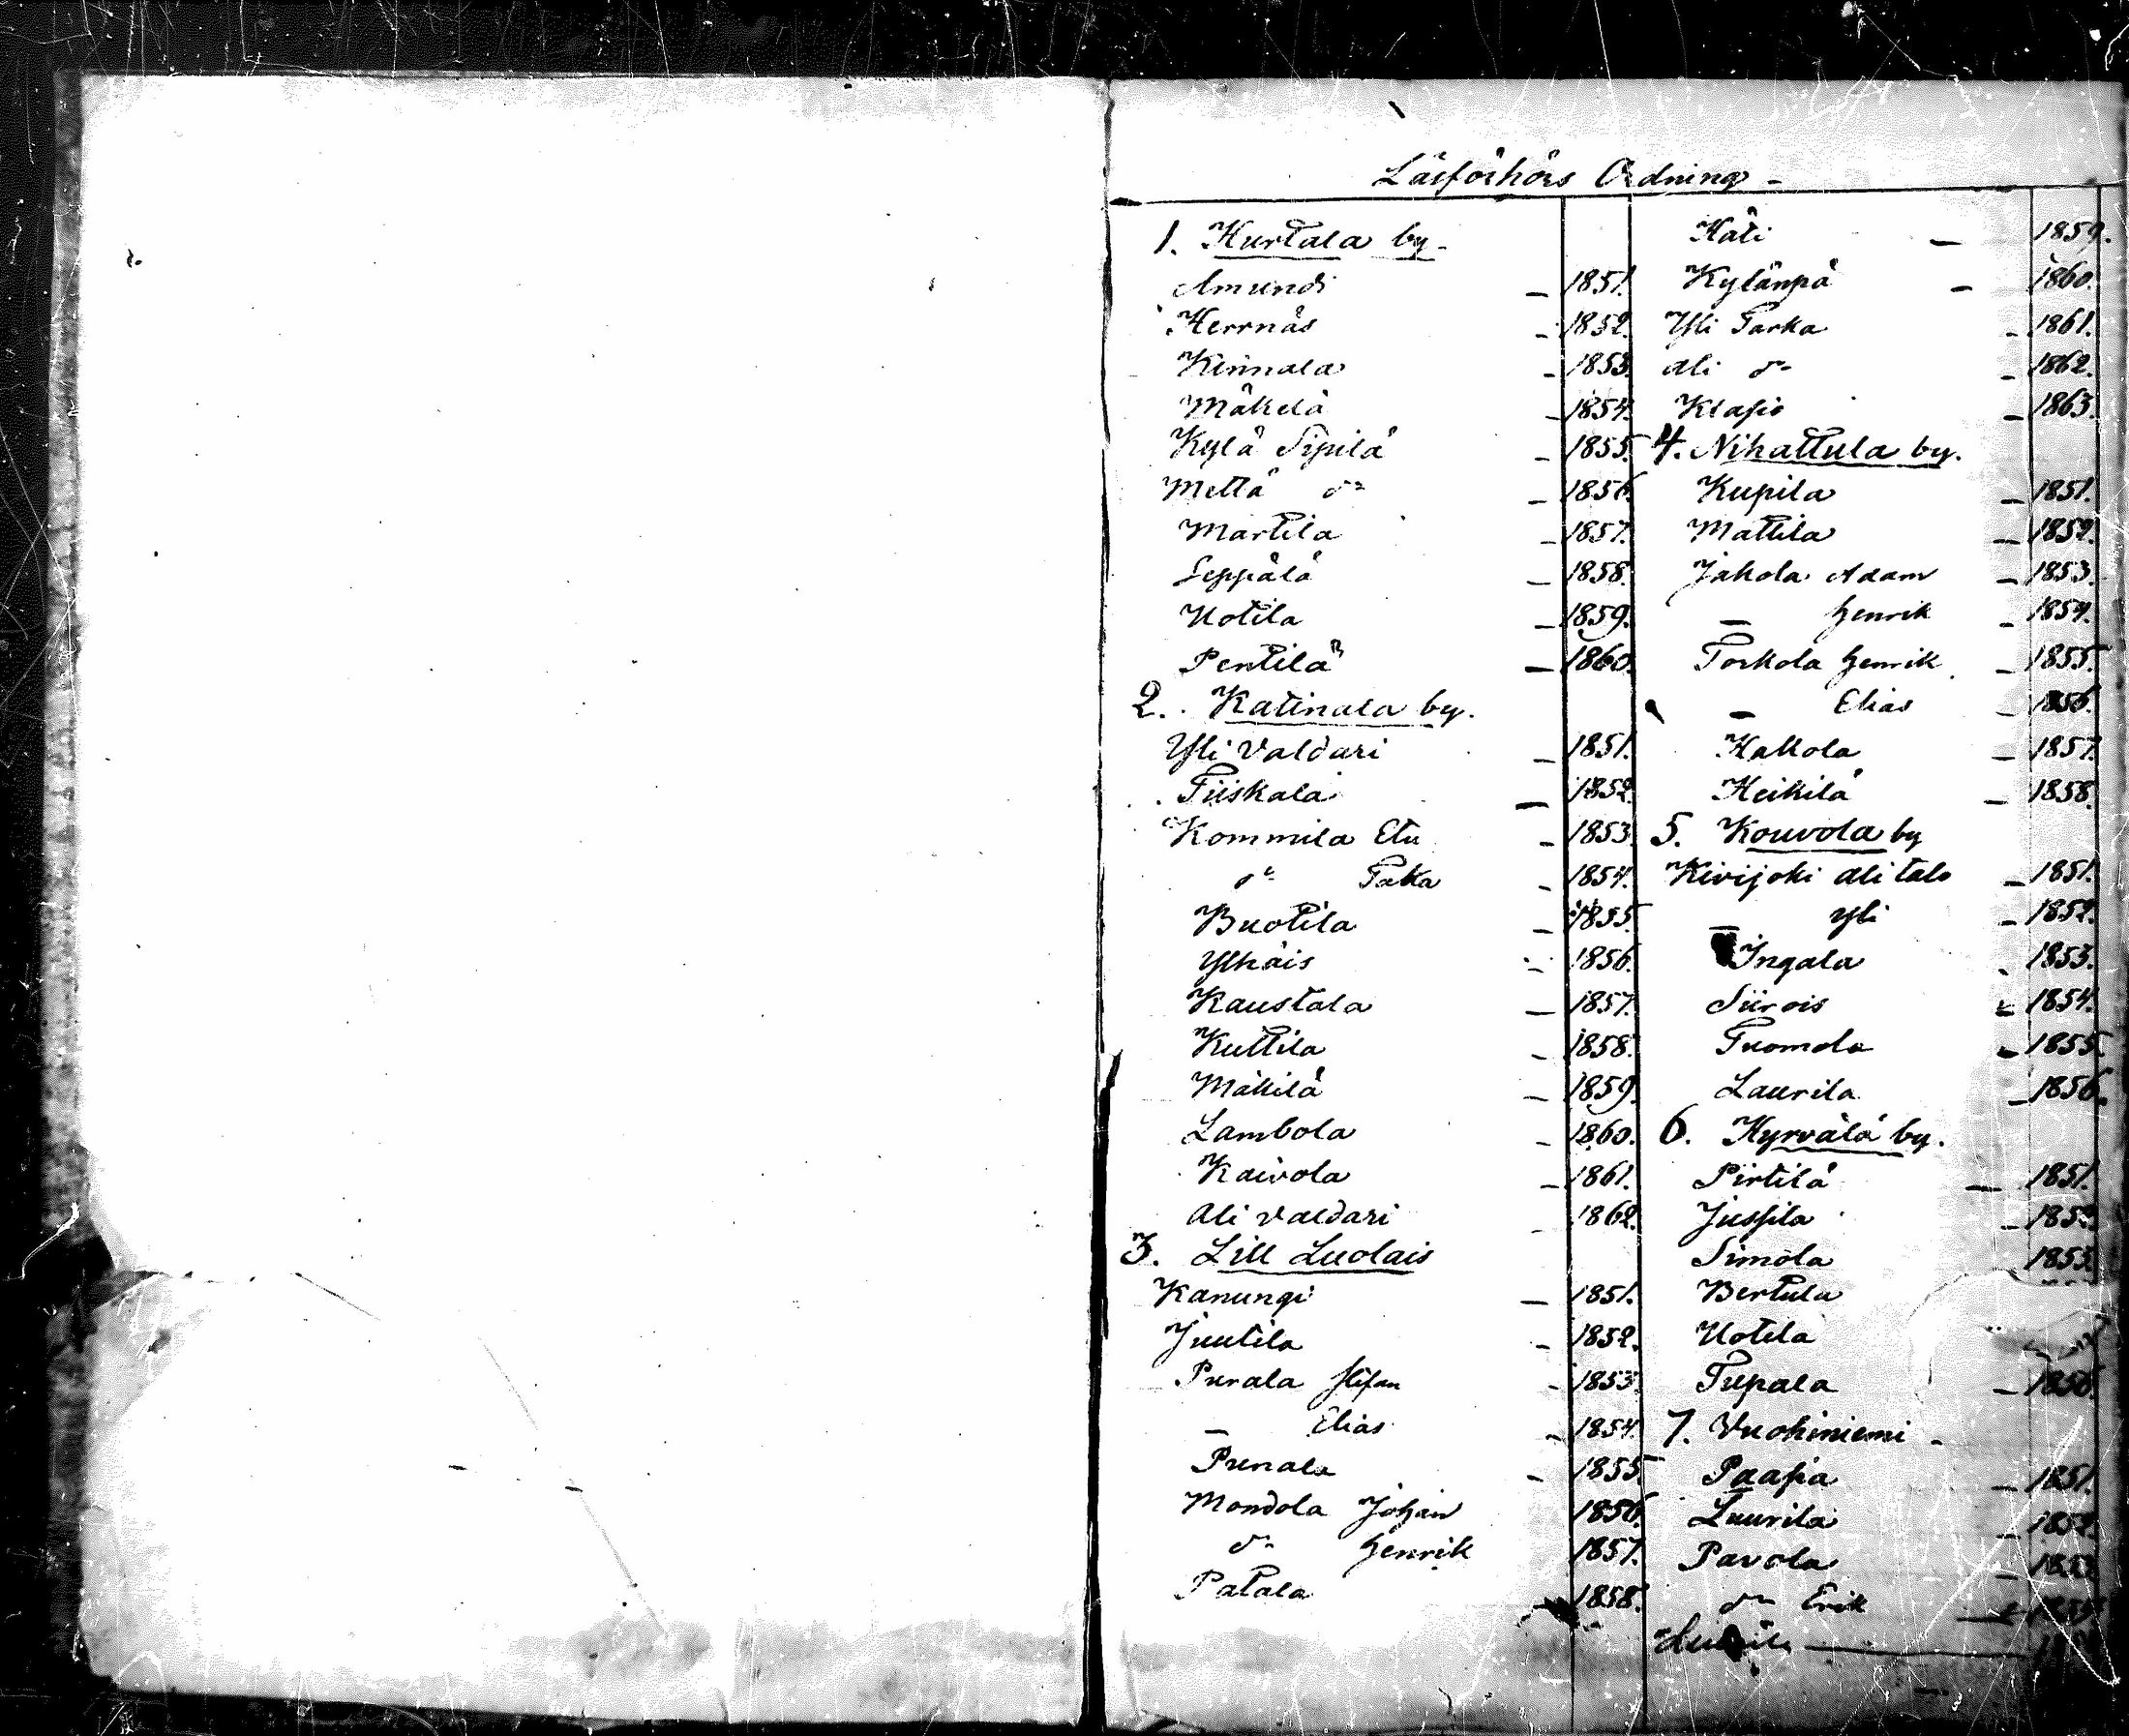 Läsförhörs Ordning -
1. Hurtala by -
Amundi - 1851.
Herrnäs - 1852.
Kinnala - 1853.
Mäkelä - 1854.
Kylä Sipilä - 1855.
Mettä do - 1856.
Martila - 1857.
Seppälä - 1858.
Uotila - 1859.
Pentilä - 1860.
2. Katinala by.
Yli Valdari - 1851.
Tiiskala - 1852.
Kommila Etu - 1853.
do Taka - 1854.
Buotila - 1855.
Ylhäis - 1856.
Kaustala - 1857.
Kuttila - 1858.
Mäkilä - 1859.
Lambola - 1860.
Kaivola - 1861.
Ali Valdari - 1862.
3. Lill Luolais
Kanungi - 1851.
Juutila - 1852.
Purala Stefan - 1853.
- Elias - 1854.
Punala - 1855.
Mondola Johan 1856.
do Henrik 1857.
Patala 1858.
Käti - 1859.
Kylänpä - 1860.
Yli Tarka - 1861.
Ali do - 1862.
Klapis - 1863.
4. Nihattula by.
Kupila - 1851.
Mattila - 1852.
Jakola Adam - 1853.
- Henrik - 1854.
Torkola Henrik - 1855.
- Elias - 1856.
Hakola - 1857.
Heikilä - 1858.
5. Kouvola by
Kivijoki Ali talo - 1851.
- Yli - 1852.
Ingala - 1853.
Siirois - 1854.
Tuomola - 1855.
Laurila - 1856.
6. Hyrvälä by.
Pirtilä - 1851.
Jussila - 1852.
Simola 1853.
Bertula
Uotila
Tupala - 1856.
7. Vuohiniemi -
Paasia - 1851.
Laurila - 1852.
Pavola - 1853.
do Erik - 1854.